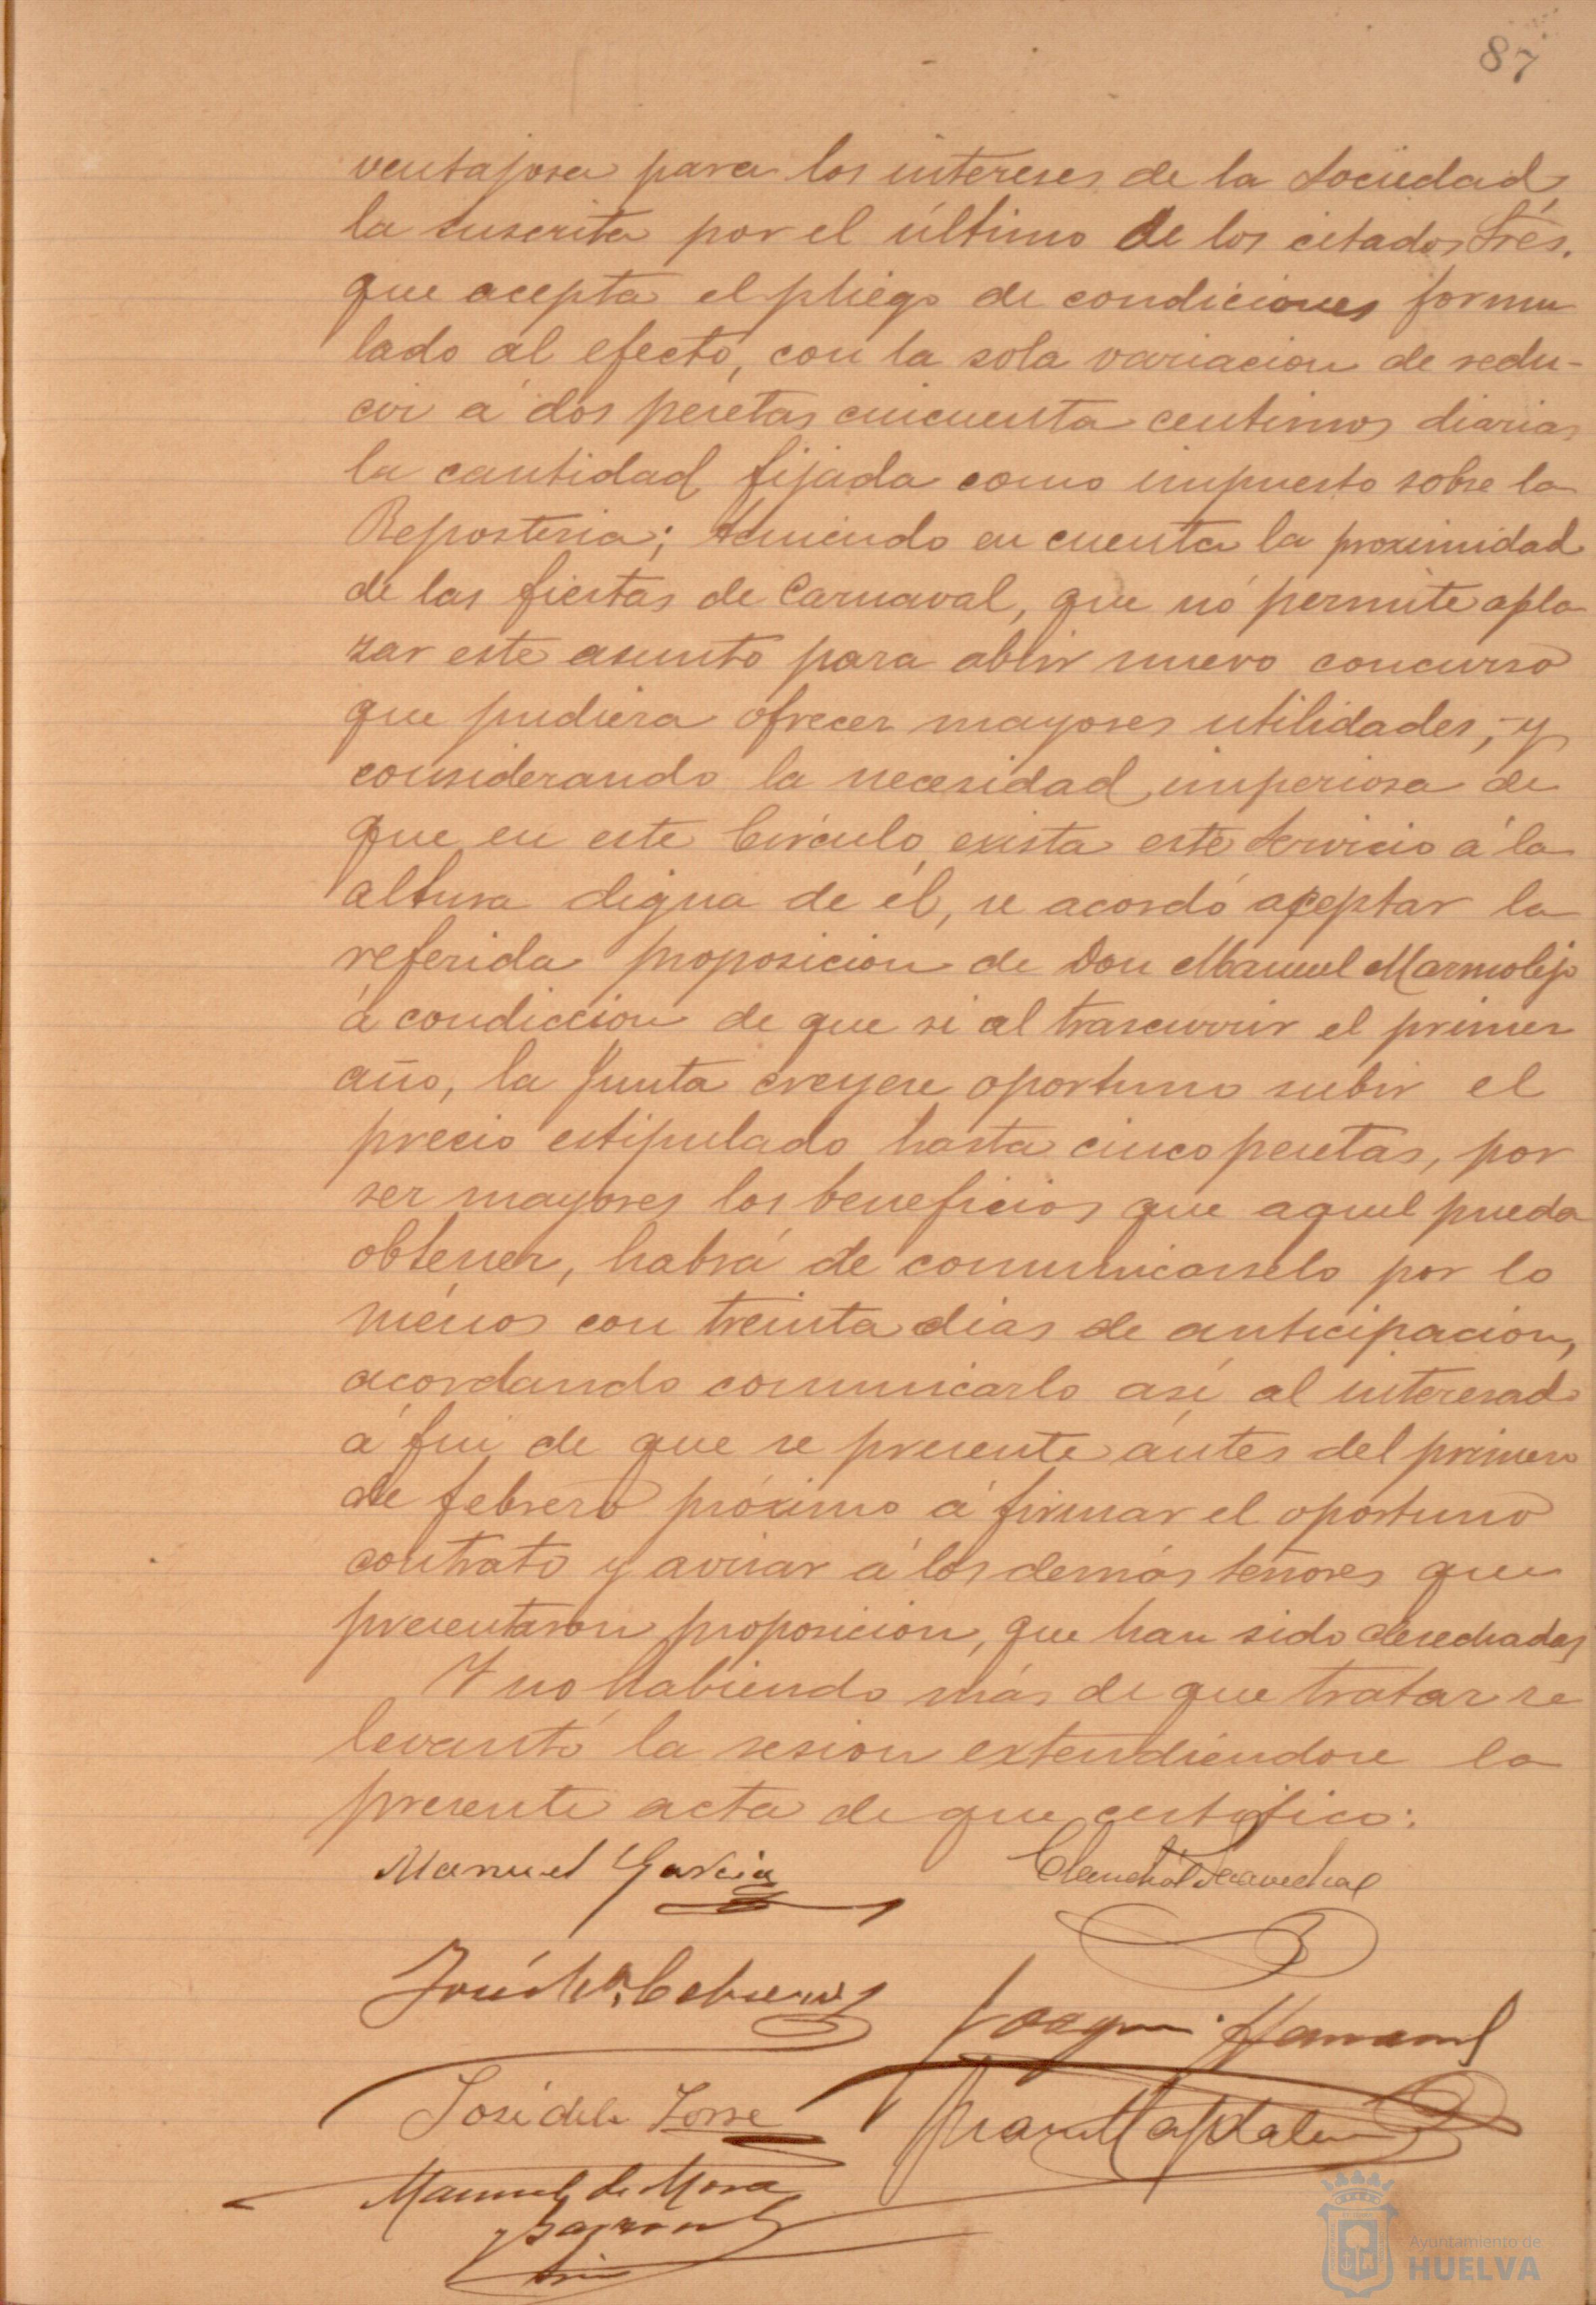 87
ventajosa para los intereses de la Sociedad,
la suscrita por el último de los citados Srés.
que acepta el pliego de condiciones formu
lado al efecto, con la sola variacion de redu-
cir á dos pesetas cincuenta centimos diarias
la cantidad fijada como impuesto sobre la
Reposteria; teniendo en cuenta la proximidad
de las fiestas de Carnaval, que nó permite apla
zar este asunto para abrir nuevo concurso
que pudiera ofrecer mayores utilidades, y
considerando la necesidad imperiosa de
que en este Círculo exista este servicio á la
altura digna de él, se acordó aceptar la
referida proposicion de Don Manuel Marmolejo
á condiccion de que si al trascurrir el primer
año, la Junta creyere oportuno subir el
precio estipulado hasta cinco pesetas, por
ser mayores los beneficios que aquel pueda
obtener, habrá de comunicarselo por lo
ménos con treinta dias de anticipación,
acordando comunicarlo así al interesado
á fin de que se presente ántes del primero
de febrero próximo á firmar el oportuno
contrato y avisar á los demás señores que
presentaron proposicion, que han sido desechadas
Y no habiendo más de que tratar se
levantó la sesion extendiéndose la
presente acta de que certifico:
Manuel Garcia
José
José de la Torre
Manuel de Mora
Ayuntamiento de
HUELVA